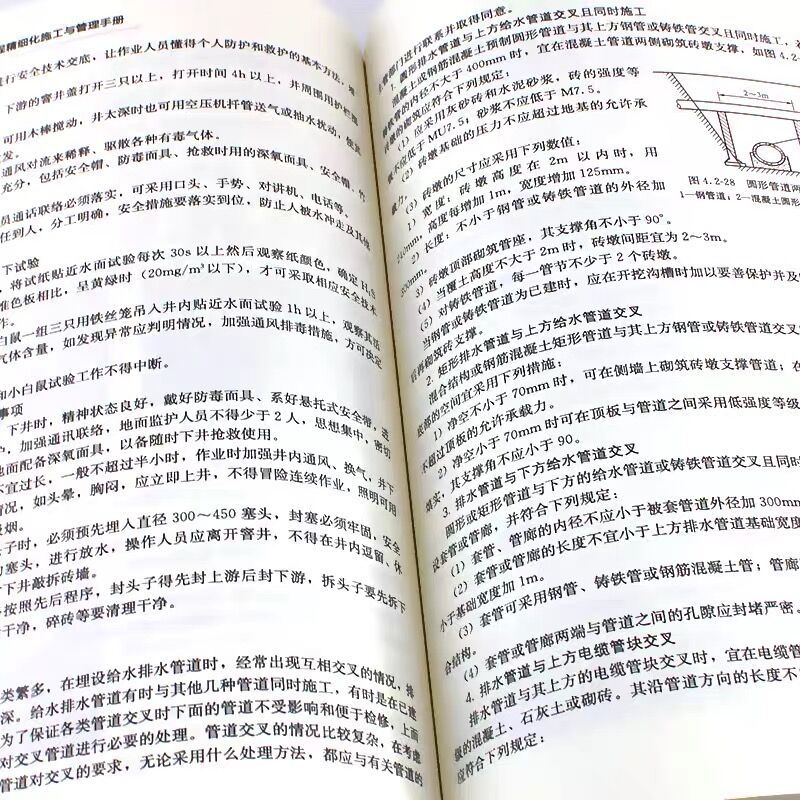 程精细化施工与管理手册
行安全技术交底，让作业人员懂得个人防护和救护的基本方法，增
下游的窨井盖打开三只以上，打开时间4h以上，井周围用护栏围
可用木棒搅动，井太深时也可用空压机扦管送气或抽水扰动，使其
发。
通风对流来稀释、驱散各种有毒气体。
充分，包括安全帽、防毒面具、抢救时用的深氧面具，安全帽、竹
员通话联络必须落实，可采用口头、手势、对讲机、电话等、
任到人，分工明确，安全措施要落实到位，防止人被水冲走及其他
下试验
，将试纸贴近水面试验每次30s以上然后观察纸颜色，确定H₂S
准色板相比，呈黄绿时（20mg/m³以下），才可采取相应安全技术
作。
白鼠一组三只用铁丝笼吊入井内贴近水面试验1h以上，观察其活
气体含量，如发现异常应判明情况，加强通风排毒措施，方可决定
和小白鼠试验工作不得中断。
事项
下井时，精神状态良好，戴好防毒面具、系好悬托式安全带，进
，加强通讯联络，地面监护人员不得少于2人，思想集中，密切
地面配备深氧面具，以备随时下井抢救使用。
不宜过长，一般不超过半小时，作业时加强井内通风、换气，井下
情况，如头晕，胸闷，应立即上井，不得冒险连续作业，照明可用
吸烟。
头子时，必须预先埋入直径300～450塞头，封塞必须牢固，安全
的塞头，进行放水，操作人员应离开窨井，不得在井内逗留、休
下井敲拆砖墙。
按照先后程序，封头子得先封上游后封下游，拆头子要先拆下
干净，碎砖等要清理干净。
类繁多，在埋设给水排水管道时，经常出现互相交叉的情况，排
深。给水排水管道有时与其他几种管道同时施工，有时是在已建
为了保证各类管道交叉时下面的管道不受影响和便于检修，上面
对交叉管道进行必要的处理。管道交叉的情况比较复杂，在考虑
管道对交叉的要求，无论采用什么处理方法，都应与有关管道的
主管部门进行联系并取得同意。
圆形排水管道与上方给水管道交叉且同时施工
混凝土或钢筋混凝土预制圆形管道与其上方钢管或铸铁管交叉且同时施工，
的内径不大于400mm时，宜在混凝土管道两侧砌筑砖墩支撑，如图4.2-
的砌筑应符合下列规定：
（1）应采用灰砂砖和水泥砂浆，砖的强度等
不应低于MU7.5；砂浆不应低于M7.5。
（2）砖墩基础的压力不应超过地基的允许承
载力。
（3）砖墩的尺寸应采用下列数值：
1）宽度：砖墩高度在2m以内时，用
240mm，高度每增加1m，宽度增加125mm。
2）长度：不小于钢管或铸铁管道的外径加
300mm。
2～3m
图4.2-28 圆形管道两
1—钢管道；2—混凝土圆形
3）砖墩顶部砌筑管座，其支撑角不小于90°。
（4）当覆土高度不大于2m时，砖墩间距宜为2～3m。
（5）对铸铁管道，每一管节不少于2个砖墩。
当钢管或铸铁管道为已建时，应在开挖沟槽时加以妥善保护并及
后再砌砖支撑。
2. 矩形排水管道与上方给水管道交叉
混合结构或钢筋混凝土矩形管道与其上方钢管道或铸铁管道交叉
底部的空间宜采用下列措施：
1）净空不小于70mm时，可在侧墙上砌筑砖墩支撑管道；在
不超过顶板的允许承载力。
2）净空小于70mm时可在顶板与管道之间采用低强度等级
填实，其支撑角不应小于90。
3. 排水管道与下方给水管道交叉
圆形或矩形管道与下方的给水管道或铸铁管道交叉且同时
设套管或管廊，并符合下列规定：
（1）套管、管廊的内径不应小于被套管道外径加300mm
（2）套管或管廊的长度不宜小于上方排水管道基础宽度
小于基础宽度加1m。
（3）套管可采用钢管、铸铁管或钢筋混凝土管；管廊
合结构。
（4）套管或管廊两端与管道之间的孔隙应封堵严密。
4. 排水管道与上方电缆管块交叉
排水管道与其上方的电缆管块交叉时，宜在电缆管
级的混凝土、石灰土或砌砖。其沿管道方向的长度不
应符合下列规定：